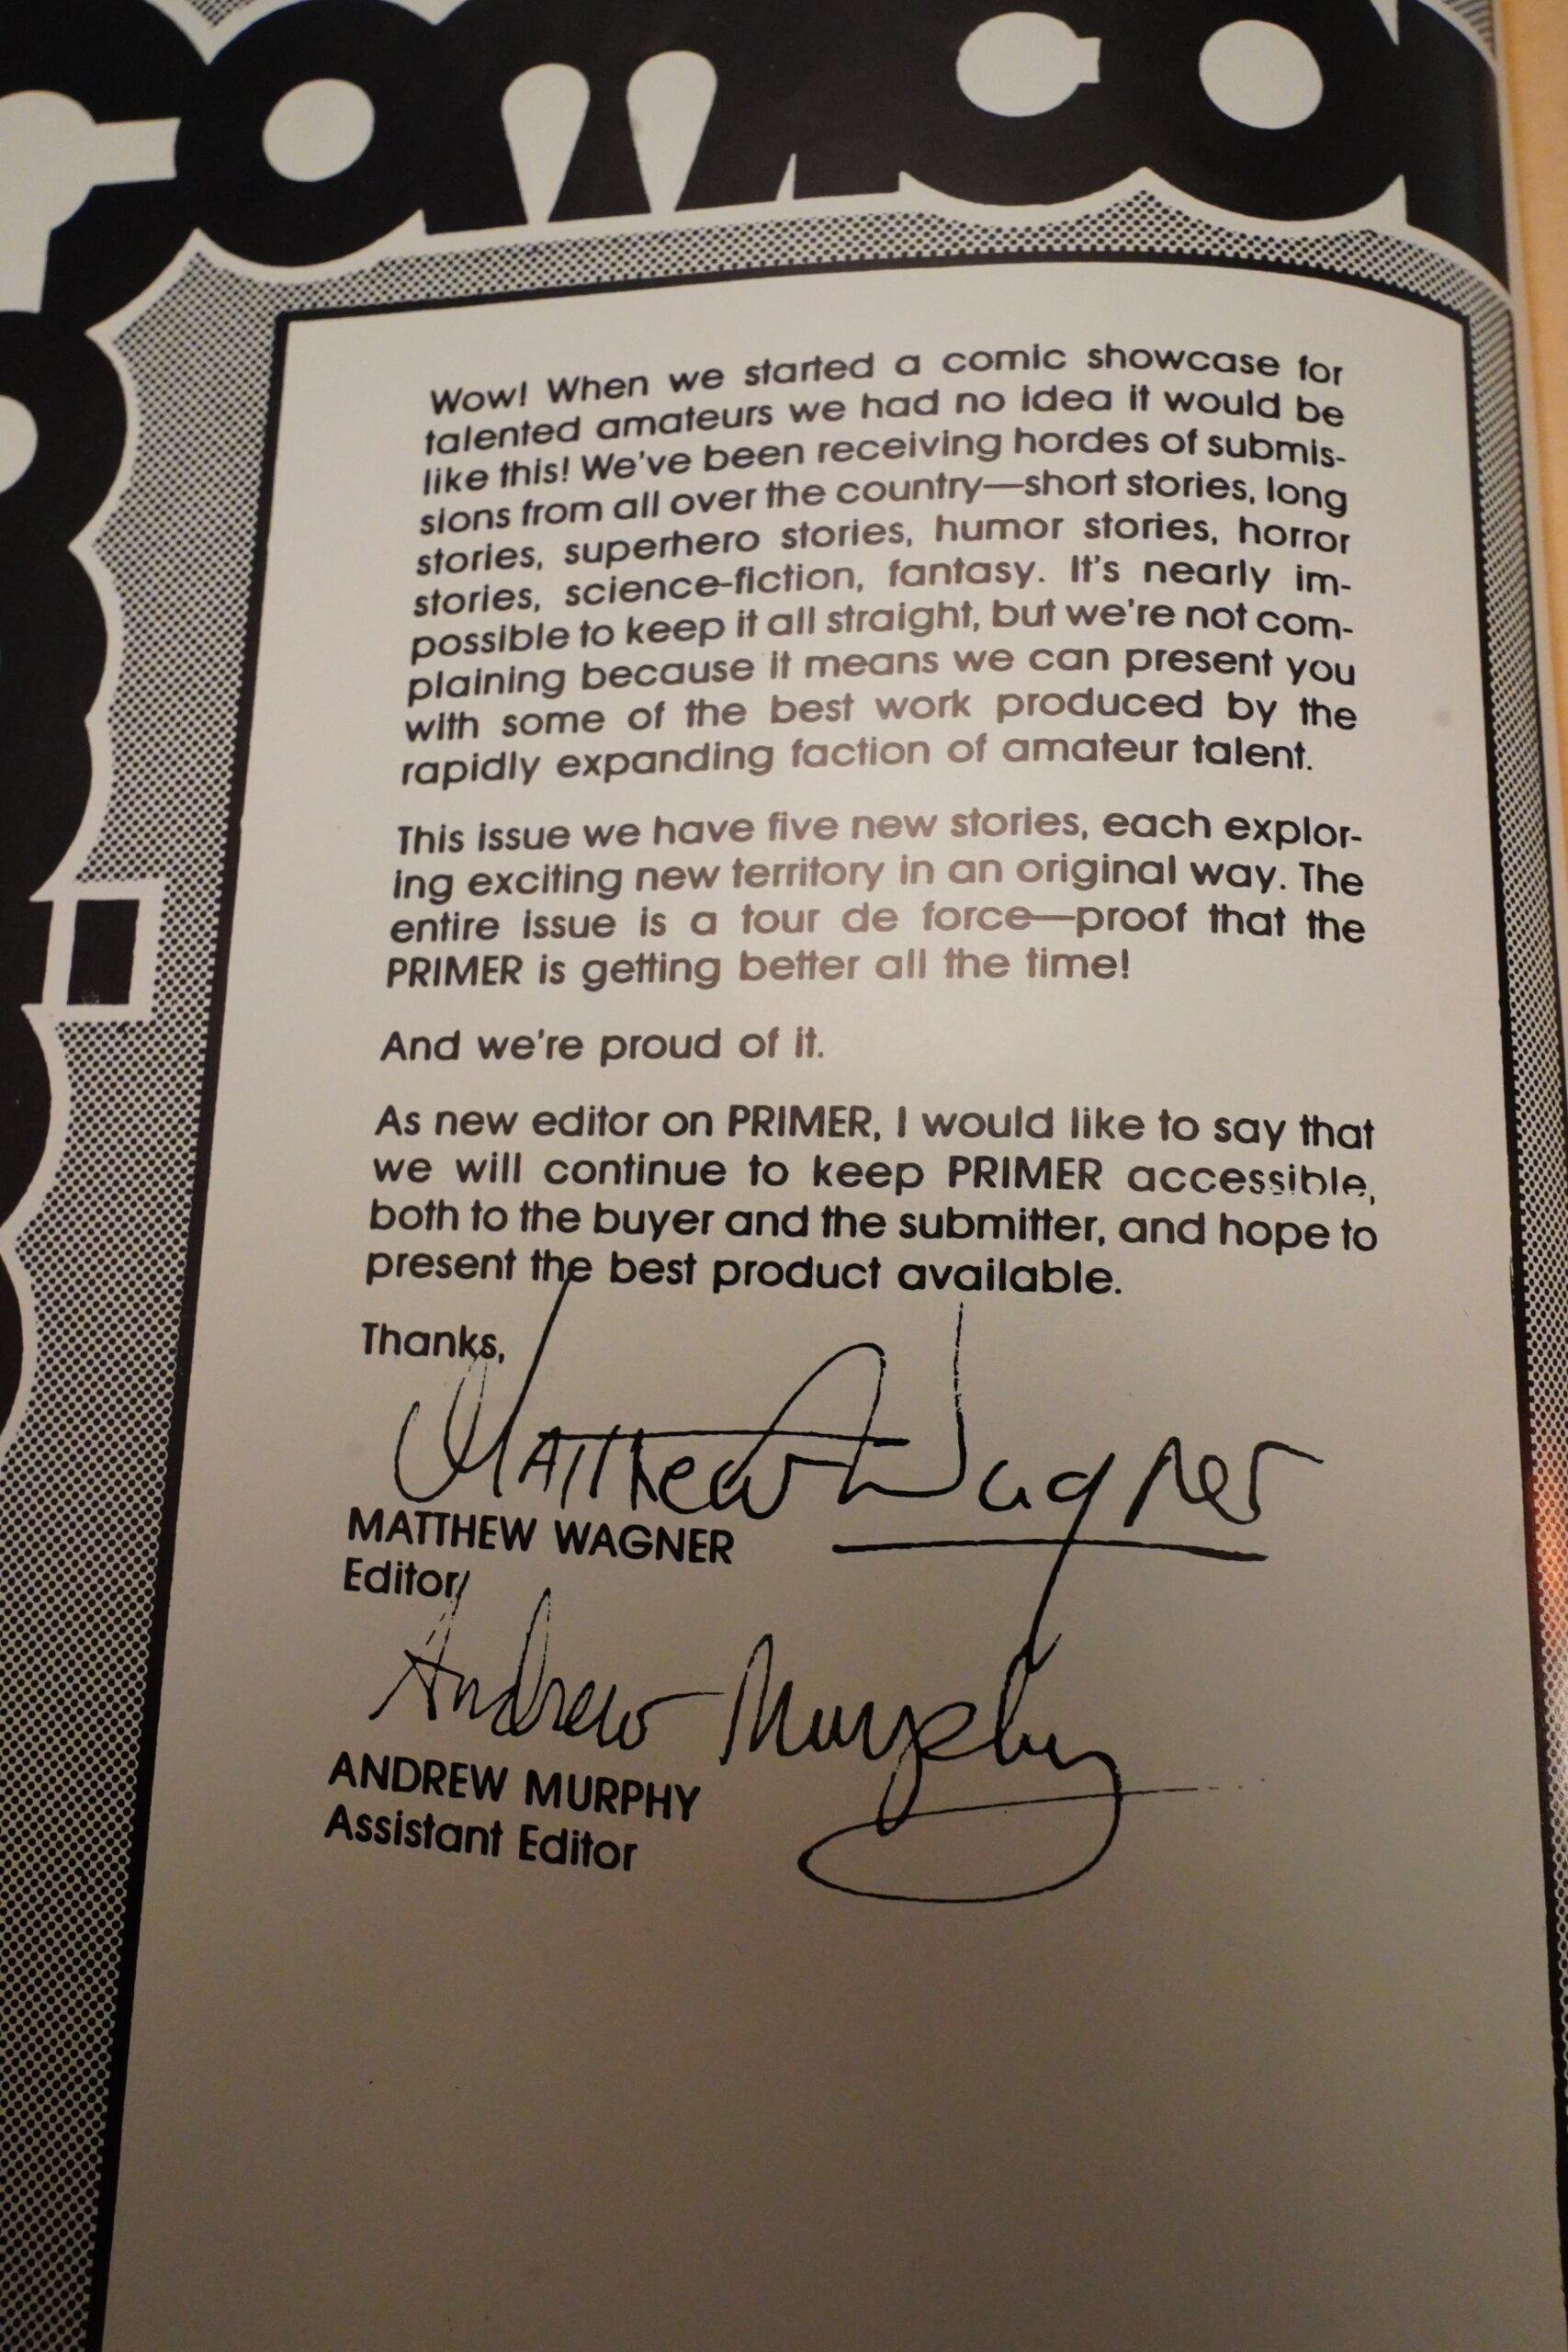 Wow! When we started a comic showcase for
talented amateurs we had no idea it would be
like this! We've been receiving hordes of submis-
sions from all over the country—short stories, long
stories, superhero stories, humor stories, horror
stories, science-fiction, fantasy. It's nearly im-
possible to keep it all straight, but we're not com-
plaining because it means we can present you
with some of the best work produced by the
rapidly expanding faction of amateur talent.
This issue we have five new stories, each explor-
ing exciting new territory in an original way. The
entire issue is a tour de force—proof that the
PRIMER is getting better all the time!
And we're proud of it.
As new editor on PRIMER, I would like to say that
we will continue to keep PRIMER accessible,
both to the buyer and the submitter, and hope to
present the best product available.
Thanks,
Matthew Wagner
MATTHEW WAGNER
Editor
Andrew Murphy
ANDREW MURPHY
Assistant Editor